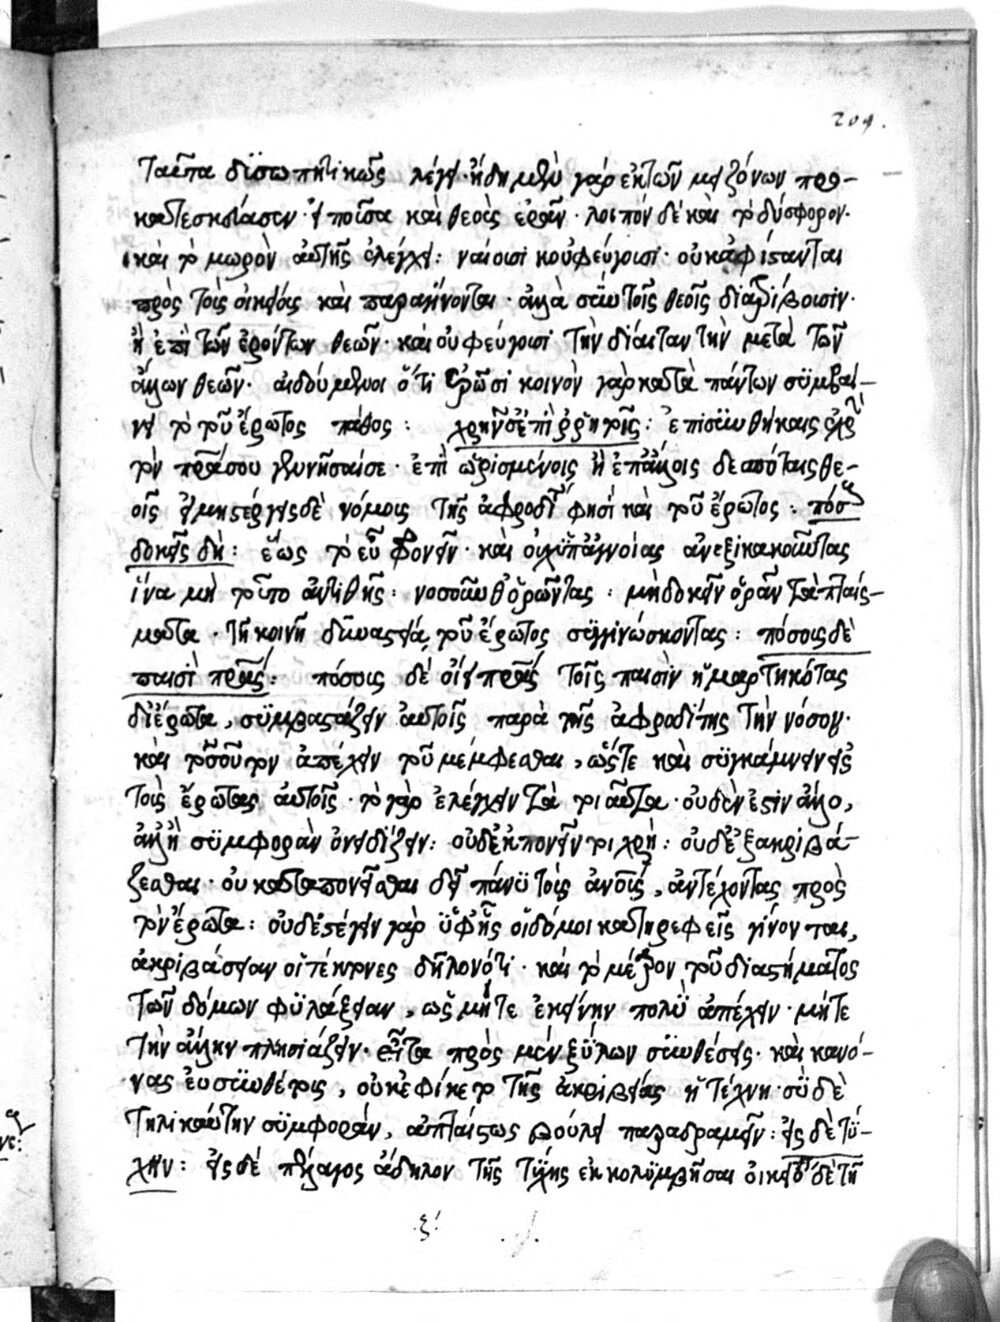 204.
ταῦτα δυσωπητικῶς λέγει· ἤδη μὲν γὰρ ἐκ τῶν μειζόνων προ-
κατεσκεύασεν· εἰποῦσα καὶ θεοὺς ἐρᾶν· λοιπὸν δὲ καὶ τὸ δύσφορον·
καὶ τὸ μωρὸν αὐτῆς ἐλέγχει: ναίουσι κοὐ φεύγουσι· οὐκ ἀφίπτανται
πρὸς τοὺς οἰκείους καὶ· ἀλλὰ σὺν τοῖς θεοῖς διατρίβουσιν·
ἢ ἐπὶ τῶν ἐρώντων θεῶν· καὶ οὐ φεύγουσι τὴν δίαιταν τὴν μετὰ τῶν
ἄλλων θεῶν· αἰδούμενοι ὅτι ἐρῶσι κοινὸν γὰρ κατὰ πάντων συμβαί-
νει τὸ τοῦ ἔρωτος πάθος: χρῆν σ' ἐπὶ ῥητοῖς: ἐπὶ συνθήκαις
τὸν πατέρα σου γεννῆσαί σε· ἐπὶ ὡρισμένοις ἢ ἐπ' ἄλλοις δεσπόταις θε-
οῖς εἰ μὴ στέργεις δὲ νόμοις τῆς ἀφροδίτης φησὶ καὶ τοῦ ἔρωτος: πόσους
δοκεῖς δὴ: ἕως τοῦ εὖ φρονεῖν· καὶ οὐχ ὑπ' ἀγνοίας ἀνεξικακοῦντας
ἵνα μὴ τοῦτο ἀντιθῇς: νοσοῦνθ' ὁρῶντας: μὴ δοκεῖν ὁρᾶν τὰ πταίσ-
ματα· τῇ κοινῇ δυναστείᾳ τοῦ ἔρωτος συγγινώσκοντας: πόσους δὲ
παισὶ πατέρας: πόσους δὲ οἴει πατέρας τοῖς παισὶν ἡμαρτηκότας
δι' ἔρωτα, συμβαστάζειν αὐτοῖς παρὰ τῆς ἀφροδίτης τὴν νόσον·
καὶ τοσοῦτον ἀπέχειν τοῦ μέμφεσθαι, ὥστε καὶ συγκάμνειν εἰς
τοὺς ἔρωτας αὐτοῖς· τὸ γὰρ ἐλέγχειν τὰ τοιαῦτα· οὐδὲν ἐστὶν ἄλλο,
ἀλλ' ἢ συμφορὰν ὀνειδίζειν: οὐδ' ἐκπονεῖν τοι χρὴ: οὐδ' ἐξακριβά-
ζεσθαι· οὐ καταπονεῖσθαι δεῖ πάνυ τοὺς ἀνθρώπους, ἀντέχοντας πρὸς
τὸν ἔρωτα: οὐδὲ στέγειν γὰρ ὑφ' ἧς οἱ δόμοι κατηρεφεῖς γίνονται,
ἀκριβάσειαν οἱ τέκτονες δηλονότι· καὶ τὸ μέτρον τοῦ διαστήματος
τῶν δόμων φυλάξειαν, ὡς μήτε ἐκείνην πολὺ ἀπέχειν· μήτε
τὴν ἄλλην πλησιάζειν· εἶτα πρὸς μὲν ξύλων συνθέσεις· καὶ κανό-
νας εὐσυνθέτους, οὐκ ἐφίκετο τῆς ἀκριβείας ἡ τέχνη· σὺ δὲ
τηλικαύτην συμφορὰν, ἀπταίστως βούλει παραδραμεῖν: εἰς δὲ τὴν τύ-
χην: εἰς δὲ πέλαγος ἄδηλον τῆς τύχης ἐκκολυμβῆσαι
ξ´